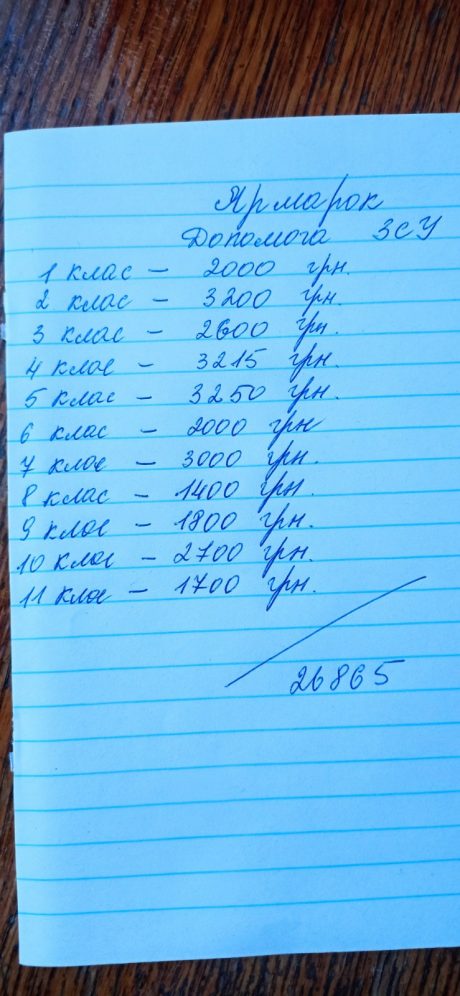 Ярмарок
Допомога ЗСУ
1 клас – 2000 грн.
2 клас – 3200 грн.
3 клас – 2600 грн.
4 клас – 3215 грн.
5 клас – 3250 грн.
6 клас – 2000 грн
7 клас – 3000 грн.
8 клас – 1400 грн.
9 клас – 1800 грн.
10 клас – 2700 грн.
11 клас – 1700 грн.
26865